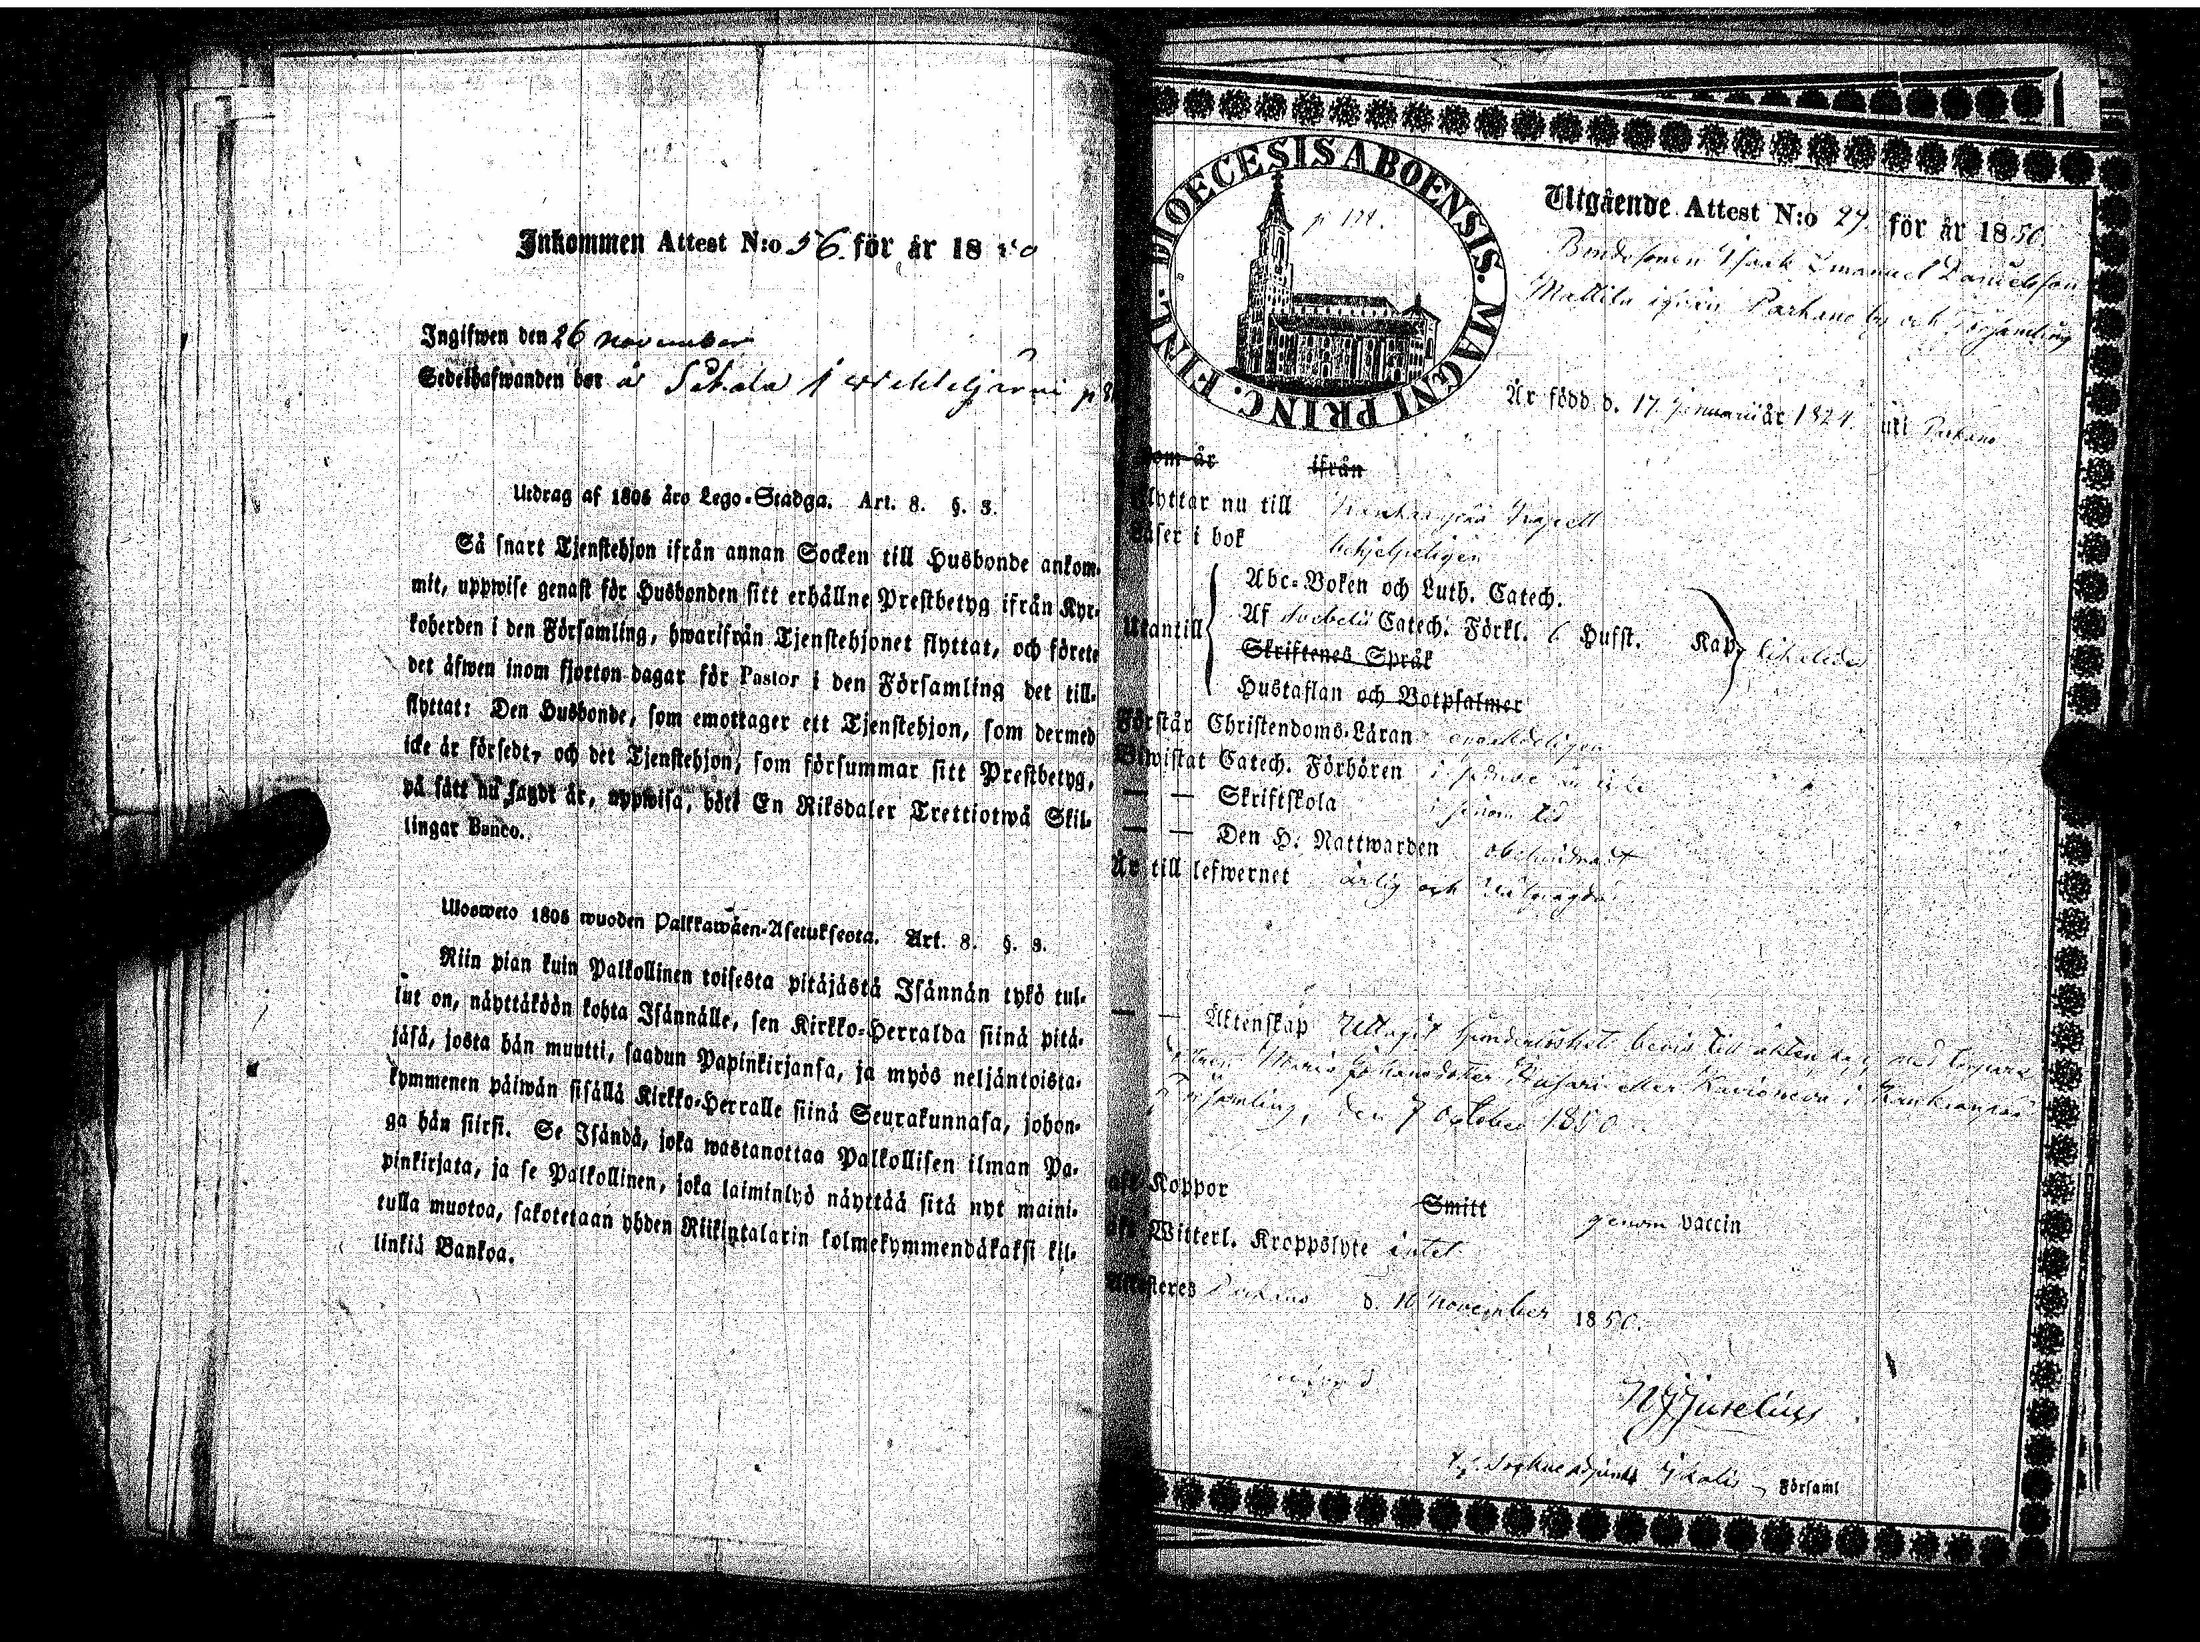 Inkommen Attest N:o 56. för år 1850
Ingifwen den 26 november
Sedelhafwanden bor å Sikala i
Utdrag af 1805 års Lego-Stadga. Art. 8. §. 3.
Så snart Tjenstehjon ifrån annan Socken till Husbonde ankom-
mit, uppwise genast för Husbonden sitt erhållne Prestbetyg ifrån Kyr-
koherden i den Församling, hwarifrån Tjenstehjonet flyttat, och förete
det äfwen inom fjorton dagar för Pastor i den Församling det till-
flyttat: Den Husbonde, som emottager ett Tjenstehjon, som dermed
icke är försedt, och det Tjenstehjon, som försummar sitt Prestbetyg,
på sätt nu sagdt är, uppwisa, böte En Riksdaler Trettiotwå Skil-
lingar Banco.
Ulosweto 1805 wuoden Palkkawäen-Asetuksesta. Art. 8. §. 3.
Niin pian kuin Palkollinen toisesta pitäjästä Isännän tykö tul-
lut on, näyttäköön kohta Isännälle, sen Kirkko-Herralda siinä pitä-
jäsä, josta hän muutti, saadun Papinkirjansa, ja myös neljäntoista-
kymmenen päiwän sisällä Kirkko-Herralle siinä Seurakunnasa, johon-
ga hän siirsi. Se Isändä, joka wastanottaa Palkollisen ilman Pa-
pinkirjata, ja se Palkollinen, joka laiminlyö näyttää sitä nyt maini-
tulla muotoa, sakotetaan yhden Riikintalarin kolmekymmendäkaksi kil-
linkiä Bankoa.
DIOECESIS ABOENSIS. MAGNI PRINC. FINL.
Utgående Attest N:o 27. för år 1850.
Bondesonen Isaak Emanuel Danielsson
Mattila ifrån Parkano by och Församling
Är född d. 17 januarii år 1824. uti Parkano
som år ifrån
flyttar nu till Kankaanpää Kapell
Läser i bok behjelpeligen
Abc-Boken och Luth. Catech.
Utantill Af Svebelii Catech. Förkl. 6 Hufst. Kap.
Skriftenes Språk
Hustaflan och Botpsalmer
Förstår Christendoms-Läran
Biwistat Catech. Förhören
— — Skriftskola i sinom tid
— — Den H. Nattwarden obehindradt
Är till lefwernet ärlig och
— — Äktenskap Uttagit hinderlöshets bevis till äktenskap med
Maria Johansdotter i Kankaanpää
Församling, den 7 October 1850
haft Koppor Smitt genom vaccin
haft Witterl. Kroppslyte intet
Attesteres Parkano d. 16 november 1850.
Juselius
Ikalis Församl